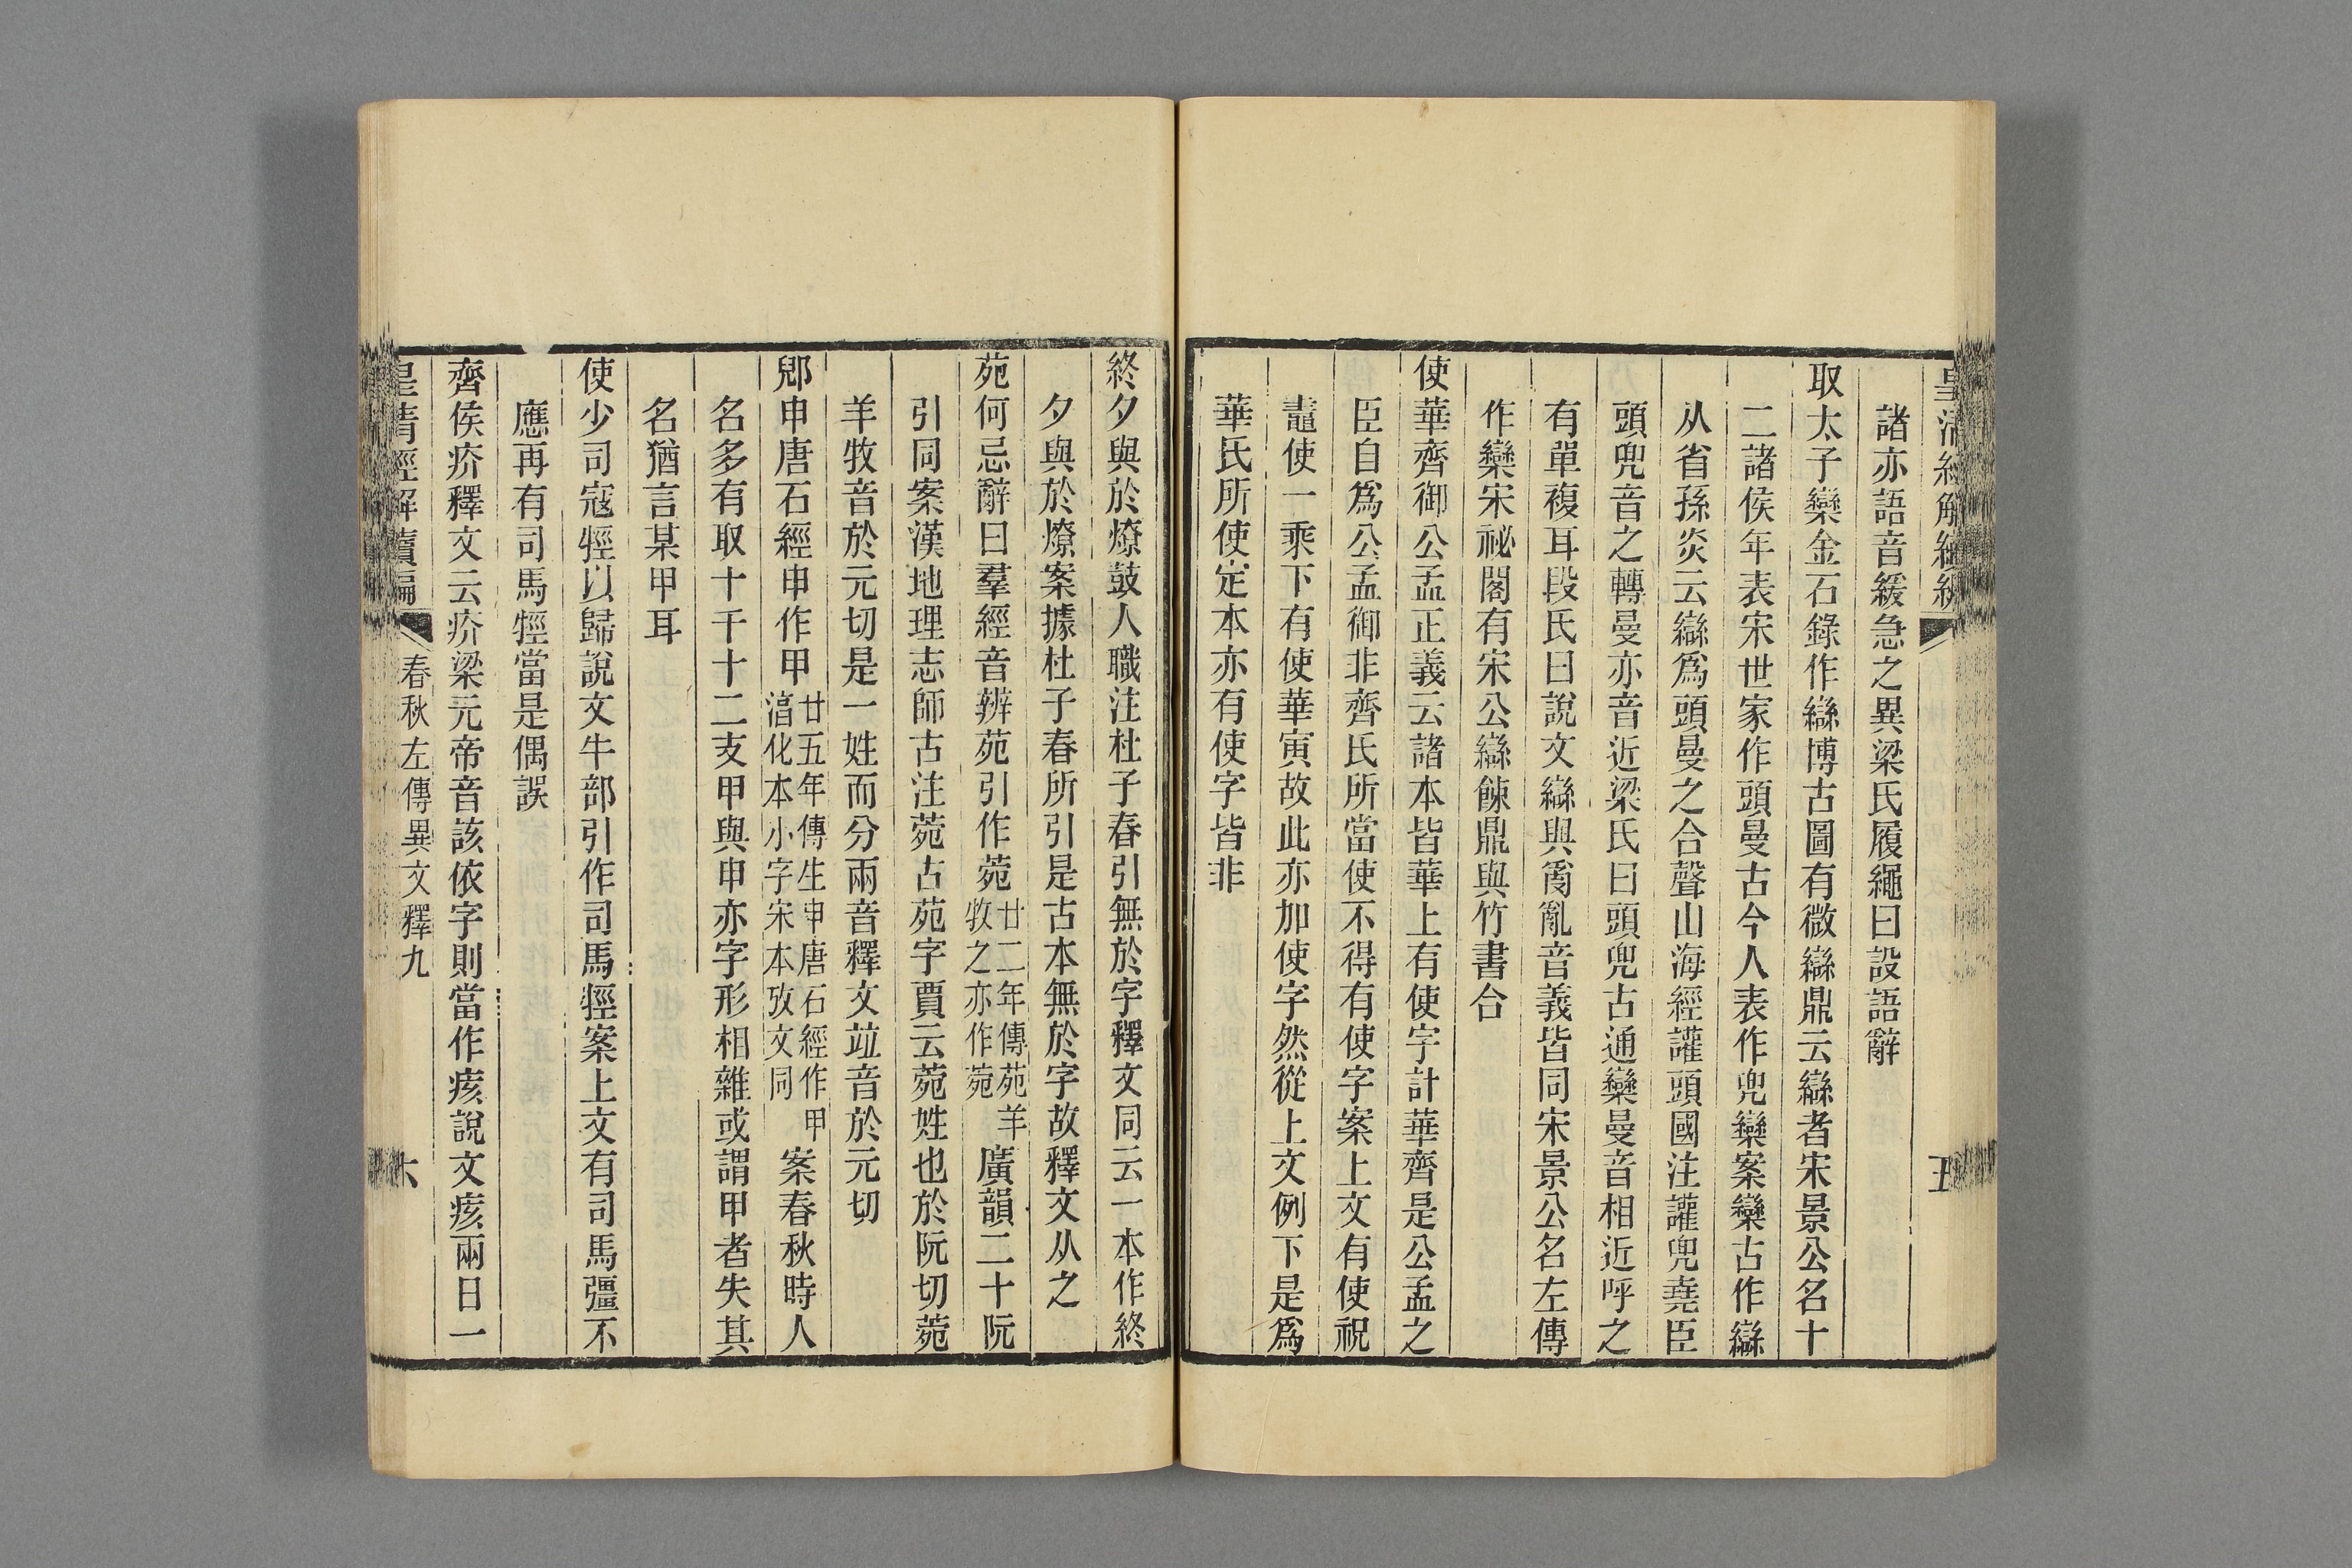 皇清經解續編
五
諸亦語音緩急之異梁氏履繩曰設語辭
取太子欒金石錄作䜌博古圖有微䜌鼎云䜌者宋景公名十
二諸侯年表宋世家作頭曼古今人表作兜欒案欒古作䜌
从省孫炎云䜌爲頭曼之合聲山海經讙頭國注讙兜堯臣
頭兜音之轉曼亦音近梁氏曰頭兜古通欒曼音相近呼之
有單複耳段氏曰說文䜌與𤔔亂音義皆同宋景公名左傳
作欒宋祕閣有宋公䜌餗鼎與竹書合
使華齊御公孟正義云諸本皆華上有使字計華齊是公孟之
臣自爲公孟御非齊氏所當使不得有使字案上文有使祝
鼃使一乘下有使華寅故此亦加使字然從上文例下是爲
華氏所使定本亦有使字皆非
終夕與於燎鼓人職注杜子春引無於字釋文同云一本作終
夕與於燎案據杜子春所引是古本無於字故釋文从之
苑何忌辭曰羣經音辨苑引作菀廿二年傳苑羊牧之亦作菀廣韻二十阮
引同案漢地理志師古注菀古苑字賈云菀姓也於阮切菀
羊牧音於元切是一姓而分兩音釋文竝音於元切
郳申唐石經申作甲廿五年傳生申唐石經作甲湻化本小字宋本攷文同案春秋時人
名多有取十干十二支甲與申亦字形相雜或謂甲者失其
名猶言某甲耳
使少司寇牼以歸說文牛部引作司馬牼案上文有司馬彊不
應再有司馬牼當是偶誤
齊侯疥釋文云疥梁元帝音該依字則當作痎說文痎兩日一
皇清經解續編
春秋左傳異文釋九
六